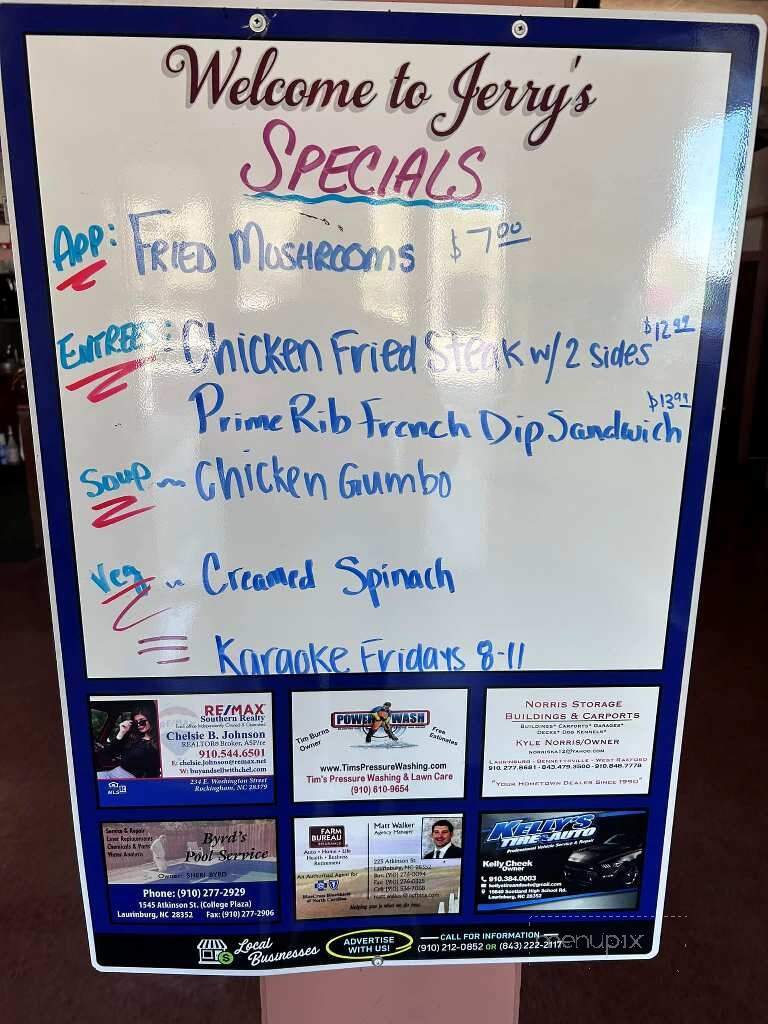 Welcome to Jerry's
SPECIALS
APP: FRIED MUSHROOMS $7.00
ENTREES: Chicken Fried Steak w/ 2 sides $12.99
Prime Rib French Dip Sandwich $13.99
Soup ~ Chicken Gumbo
Veg ~ Creamed Spinach
Karaoke Fridays 8-11
RE/MAX
Southern Realty
Each office Independently Owned & Operated
Chelsie B. Johnson
REALTOR® Broker, ASP/re
910.544.6501
E: chelsie.johnson@remax.net
W: buyandsellwithchel.com
234 E. Washington Street
Rockingham, NC 28379
MLS
POWER WASH
Tim Burns
Owner
Free
Estimates
www.TimsPressureWashing.com
Tim's Pressure Washing & Lawn Care
(910) 610-9654
NORRIS STORAGE
BUILDINGS & CARPORTS
BUILDINGS* CARPORTS* GARAGES*
DECKS* DOG KENNELS*
KYLE NORRIS/OWNER
NORRISKA12@YAHOO.COM
LAURINBURG - BENNETTSVILLE - WEST RAEFORD
910.277.8681 - 843.479.3500 - 910.848.7778
"YOUR HOMETOWN DEALER SINCE 1990"
Service & Repair
Liner Replacements
Chemicals & Parts
Water Analysis
Byrd's
Pool Service
Owner: SHERI BYRD
Phone: (910) 277-2929
1545 Atkinson St. (College Plaza)
Laurinburg, NC 28352 Fax: (910) 277-2906
FARM
BUREAU
INSURANCE
Auto • Home • Life
Health • Business
Retirement
An Authorized Agent for
BlueCross BlueShield
of North Carolina
Matt Walker
Agency Manager
225 Atkinson St.
Laurinburg, NC 28352
Helping you is what we do best.
KELLY'S
TIRE & AUTO
Professional Vehicle Service & Repair
Kelly Cheek
Owner
910.384.0003
kellystireandauto@gmail.com
Scotland High School Rd.
Laurinburg, NC 28352
Local
Businesses
ADVERTISE
WITH US!
CALL FOR INFORMATION
(910) 212-0852 OR (843) 222-2117
menupix